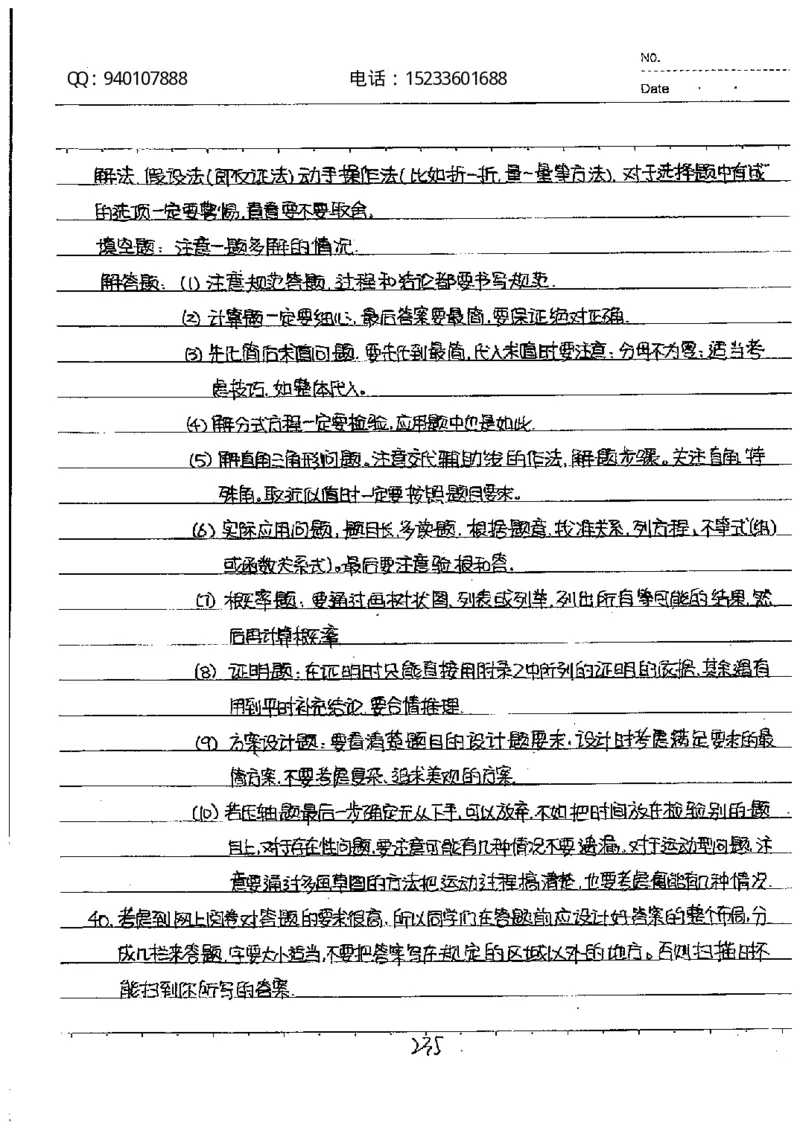 NO.
QQ：940107888 电话：15233601688
Date
解法.假设法(即反证法)动手操作法(比如折一折,量一量等方法).对于选择题中有或"
的选项一定要警惕,看看要不要取舍。
填空题：注意一题多解的情况.
解答题：(1)注意规范答题.过程和结论都要书写规范.
(2)计算题一定要细心,最后答案要最简.要保证绝对正确.
(3)先化简后求值问题.要先化到最简,代入求值时要注意：分母不为零；适当考
虑技巧.如整体代入。
(4)解分式方程一定要检验,应用题中也是如此.
(5)解直角三角形问题。注意交代辅助线的作法,解题步骤。关注直角.特
殊角。取近似值时一定要按照题目要求。
(6)实际应用问题,题目长,多读题.根据题意,找准关系,列方程、不等式(组)
或函数关系式)。最后要注意验根和答.
(7)概率题：要通过画树状图.列表或列举.列出所有等可能的结果,然
后再计算概率
(8)证明题：在证明时只能直接用附录2中所列的证明的依据.其余遇有
用到平时补充结论.要合情推理.
(9)方案设计题：要看清楚题目的设计题要求.设计时考虑满足要求的最
情方案,不要考虑复杂、追求美观的方案.
(10)若压轴题最后一步确定无从下手,可以放弃,不如把时间放在检验别的题
目上,对于存在性问题,要注意可能有几种情况不要遗漏。对于运动型问题,注
意要通过多画草图的方法把运动过程搞清楚,也要考虑可能有几种情况.
40.考虑到网上阅卷对答题的要求很高.所以同学们在答题前应设计好答案的整个布局,分
成几栏来答题,字要大小适当,不要把答案写在规定的区域以外的地方。否则扫描时不
能扫到你所写的答案.
235